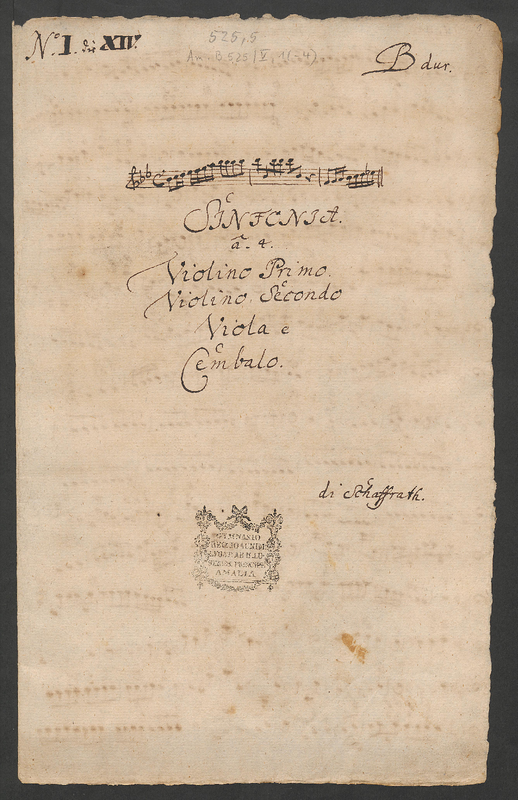 No. I. die XII!
525,5
Am. B. 525 (V, 1-4)
B dur.
SINFONIA.
à. 4.
Violino Primo.
Violino Secondo
Viola e
Cembalo.
di Schaffrath.
GYMNASIO
REG. IOACHIMI
AMALIA